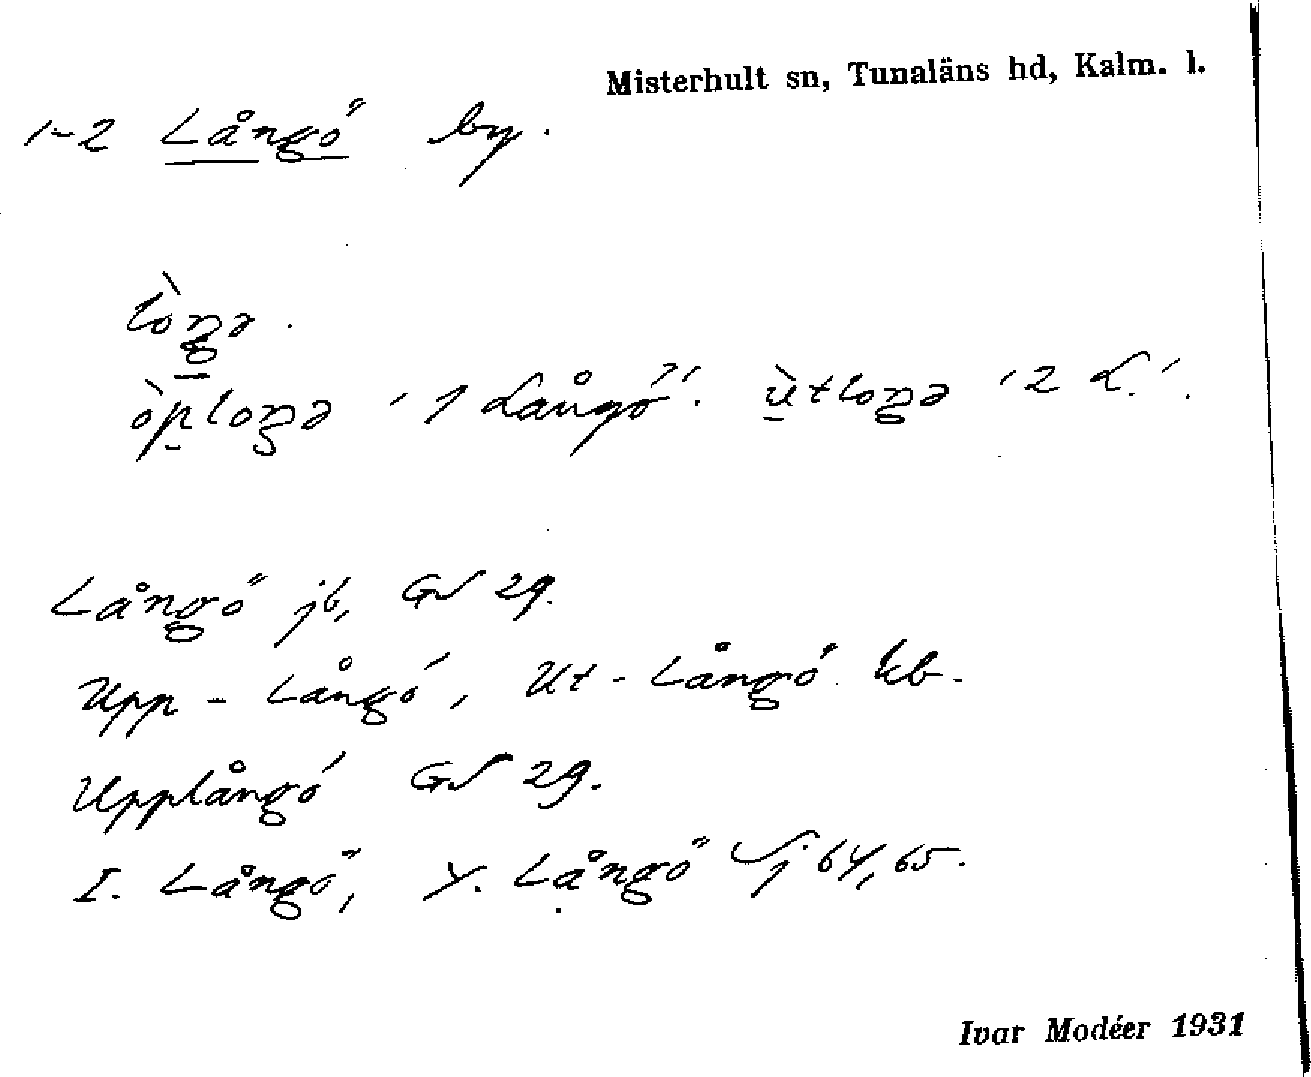 Misterhult sn, Tunaläns hd, Kalm. l.
1-2 Långö by.
lòŋə.
òploŋə '1 Långö'. ùtloŋə '2 L.'.
Långö jb, GS 29.
Upp-Långö, Ut-Långö kb.
Upplångö GS 29.
I. Långö, Y. Långö Sj 64, 65.
Ivar Modéer 1931